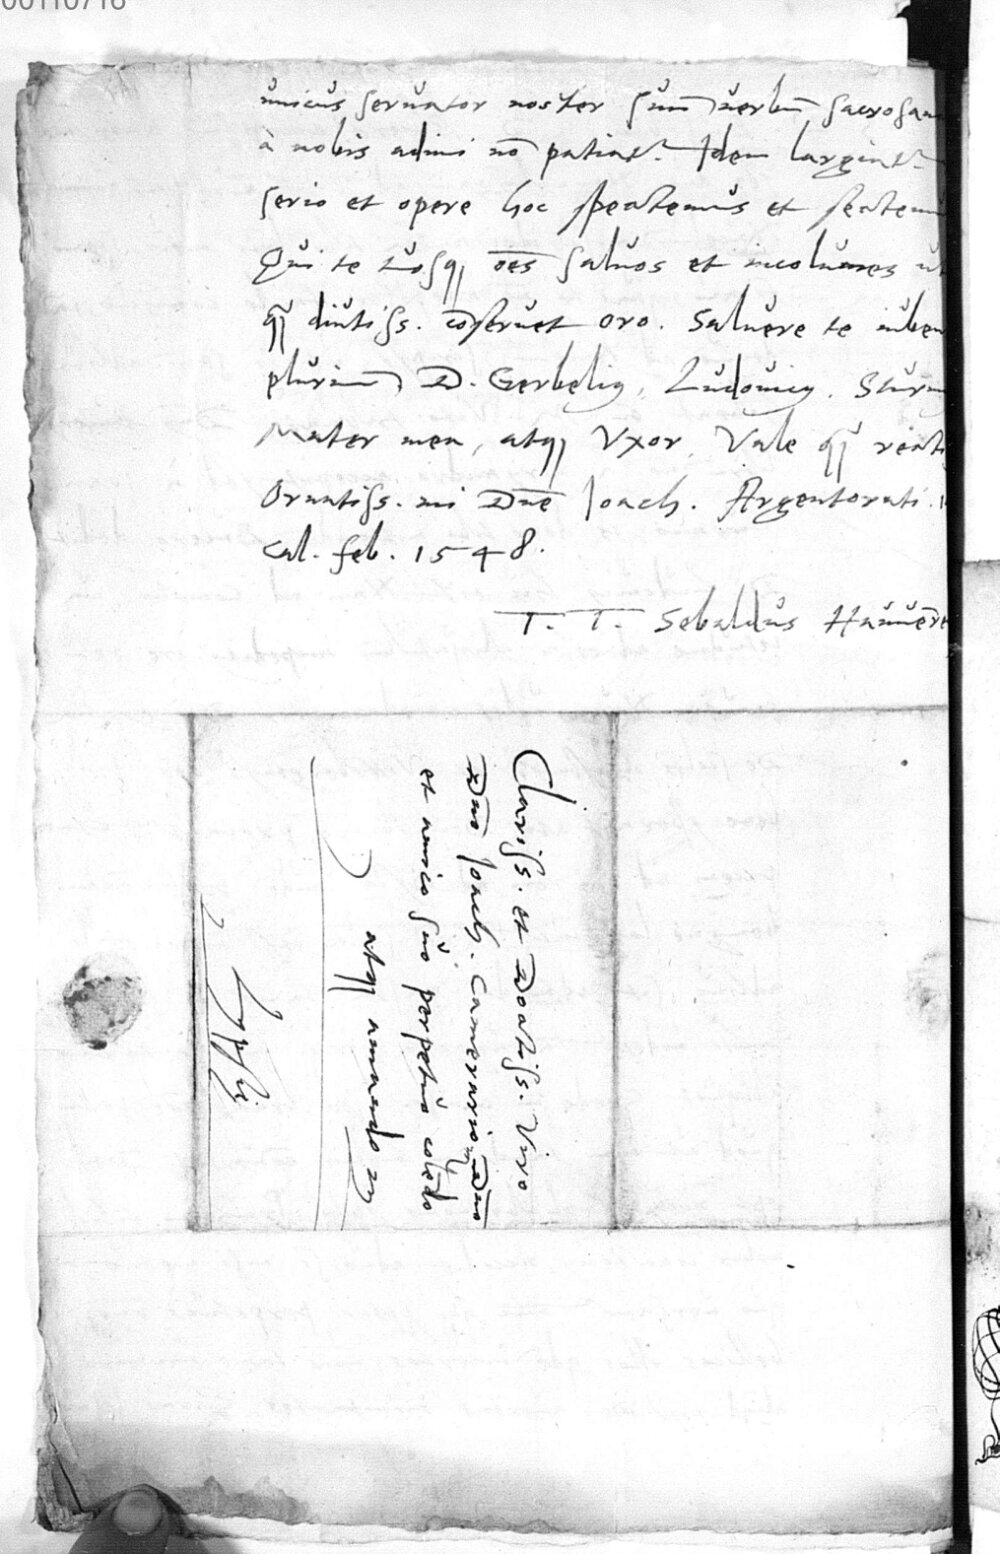 00110716
unicus seruator noster suũ uerbũ sacrosan
a nobis adimi nõ patiatr. Idem largiatr
serio et opere hoc spectemus et sectemu
Qui te tuosq; oẽs saluos et incolumes ut
q̃ diutiss. cõseruet oro. Saluere te iuben
plurimũ D. Gerbelius, Ludouicus. Sturm
Mater mea, atq; Vxor. Vale q̃ recti
Ornatiss. mi Dñe Ioach. Argentorati.
Cal. feb. 1548.
T. T. Sebaldus Hauuẽre
Clariss. et Doctiss. Viro
Dño Ioach. Camerario, Dño
et amico suo perpetuo colẽdo
atq; amando